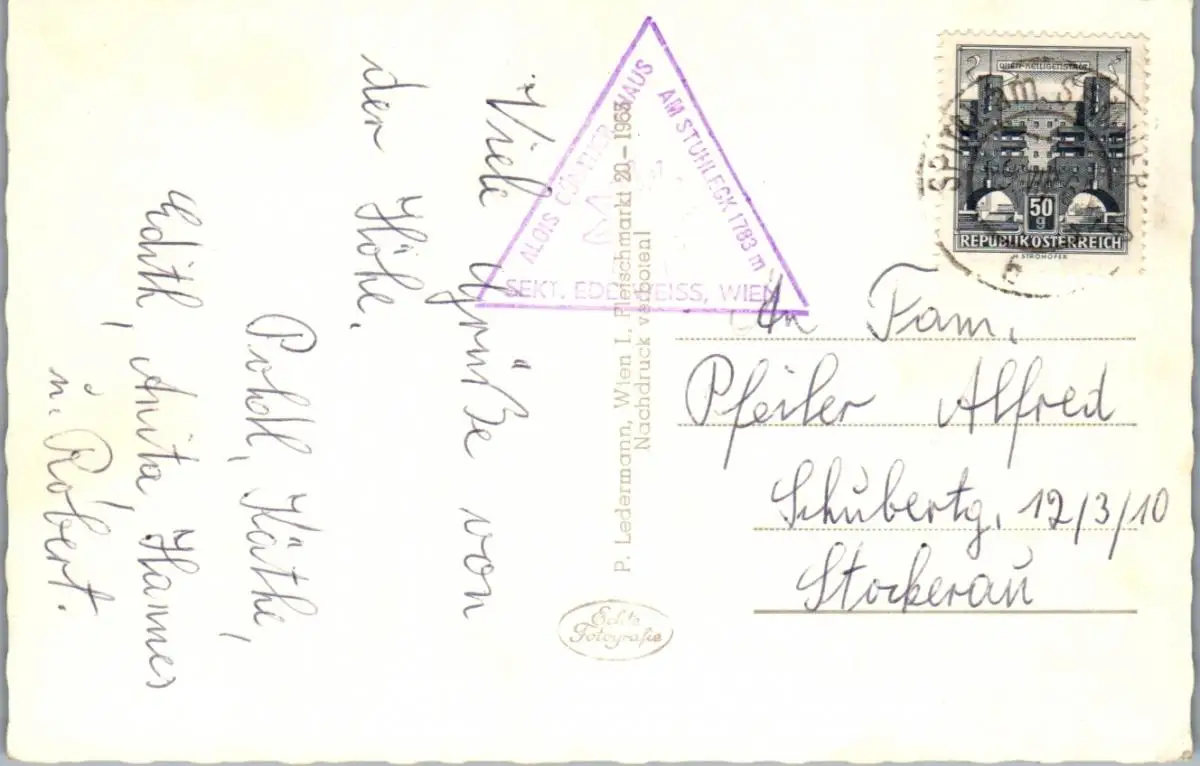 Viele Grüße von
der Höhe.
Poldl, Käthe,
Edith, Anita, Hannes
u. Robert.
ALOIS GÜNTHER HAUS
AM STUHLECK 1783 m
SEKT. EDELWEISS, WIEN
P. Ledermann, Wien I, Fleischmarkt 20,- 1963
Nachdruck verboten!
Echte
Fotografie
WIEN-HEILIGENSTADT
50
g
REPUBLIK ÖSTERREICH
H. STROHOFER
An Fam.
Pfeiler Alfred
Schubertg. 12/3/10
Stockerau